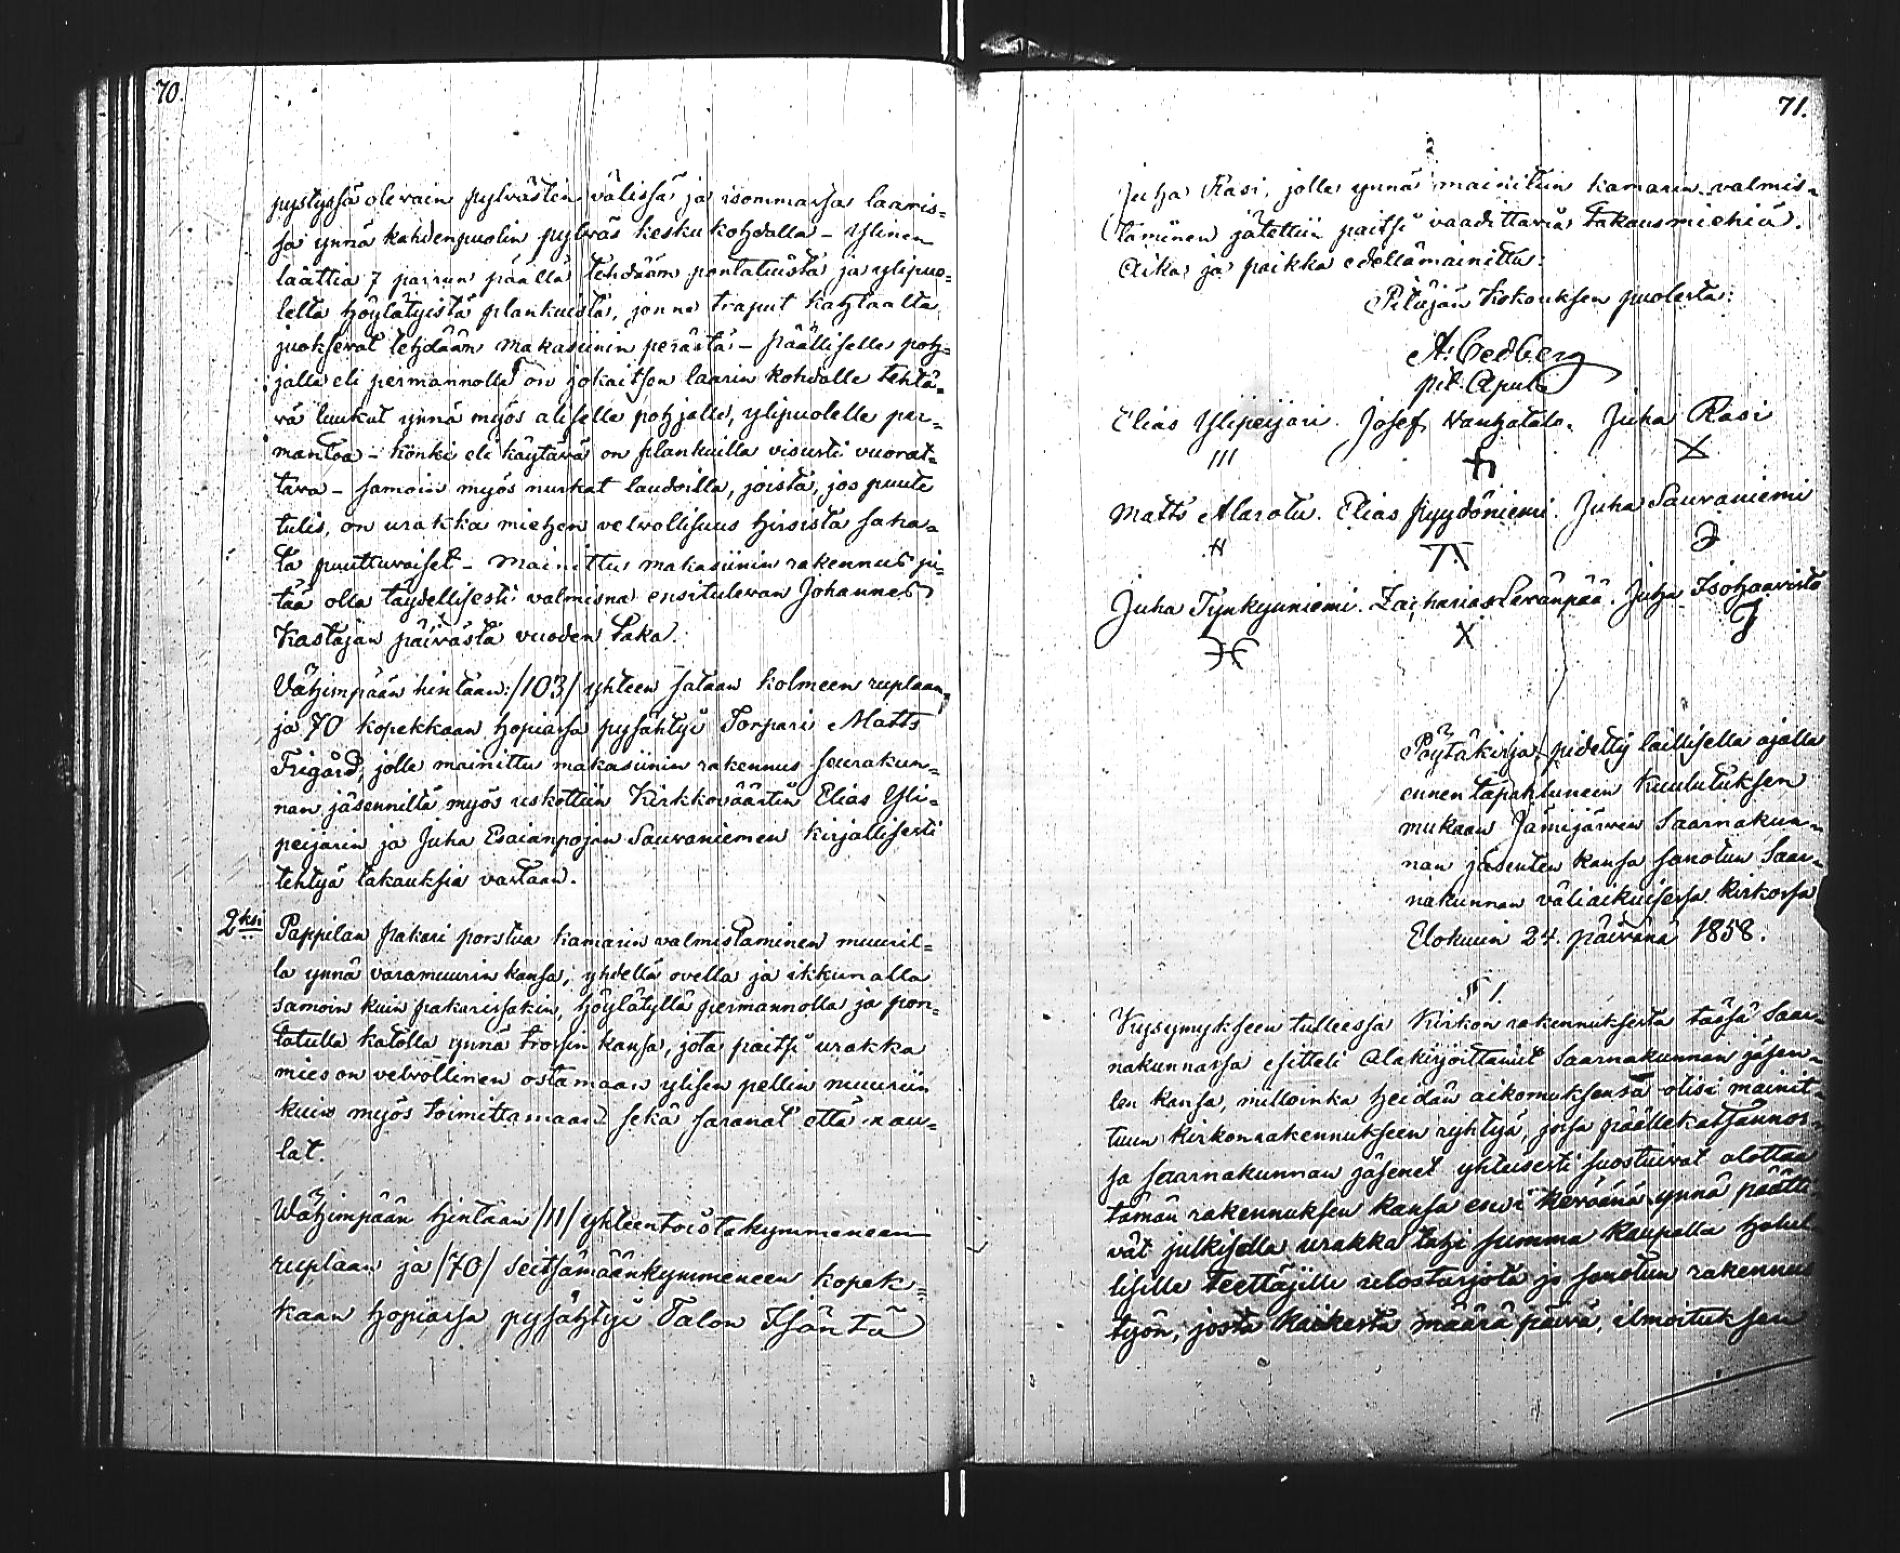 70.
pystyssä olevain pylvästen välissä ja isommassa laaris=
sa ynnä kahdenpuolin pylväs keskukohdalla - Ylinen
laattia 7 parrun päällä tehdään pontatuista ja ylipuo=
lelta höylätyistä plankuista, jonne traput kahtaalta
juoksevat tehdään makasiinin perästä - päälliselle poh=
jalle eli permannolle on jokaitsen laarin kohdalle tehtä=
vä luukut ynnä myös aliselle pohjalle, ylipuolelle per=
mantoa - Könki eli käytävä on plankuilla visusti vuorat=
tava - samoin myös nurkat laudoilla, joista, jos puute
tulis, on urakka miehen velvollisuus hirsistä saha=
ta puuttuvaiset - Mainittu makasiinin rakennus pi=
tää olla täydellisesti valmisna ensitulevan Johannes
Kastajan päivästä vuoden taka.
Vähimpään hintaan: /103/ yhteen sataan kolmeen ruplaan,
ja 70 kopekkaan hopiassa pysähtyi Torpari Matts
Frigård, jolle mainittu makasiinin rakennus seurakun=
nan jäsenniltä myös uskottiin Kirkkoväärtin Elias Yli=
peijarin ja Juha Esaianpojan Sauvaniemen kirjallisesti
tehtyä takauksia vastaan.
2ksi Pappilan pakari porstua kamarin valmistaminen muuril=
la ynnä varamuurin kansa, yhdellä ovella ja ikkunalla
samoin kuin pakarissakin, höylätyllä permannolla ja pon=
tatulla katolla ynnä trossin kansa, jota paitsi urakka
mies on velvollinen ostamaan ylisen pellin muuriin
kuin myös toimittamaan sekä saranat että nau=
lat.
Wähimpään hintaan /11/ yhteentoistakymmeneen
ruplaan ja /70/ seitsämäänkymmeneen kopek=
kaan hopiassa pysähtyi Talon Isäntä
71.
Juha Räsi, jolle ynnä mainitun kamarin valmis=
taminen jätettiin paitsi vaadittavia takausmiehiä.
Aika ja paikka edellämainittu:
Pitäjän Kokouksen puolesta:
A. Cedberg
pit. Apul.
Elias Ylipeijari. Josef Vanhatalo. Juha Räsi
Matts Alarotu. Elias Pyydöniemi. Juha Sauvaniemi
Juha Tynkyuniemi. Zacharias Peränpää. Juha Isohaavisto
Pöytäkirja, pidetty laillisella ajalla
ennen tapahtuneen kuulutuksen
mukaan Jämijärven Saarnakun=
nan jäsenten kansa sanotun Saar=
nakunnan väliaikuisessa kirkossa
Elokuun 24. päivänä 1858.
§ 1.
Kysymykseen tulleessa Kirkon rakennuksesta tässä Saar=
nakunnassa esitteli Alakirjoittanut Saarnakunnan jäsen=
ten kansa, milloinka heidän aikomuksensa olisi mainit=
tuun kirkonrakennukseen ryhtyä, jossa päällekatsannos=
sa saarnakunnan jäsenet yhteisesti suostuivat alottaa
tämän rakennuksen kansa ensi keväänä ynnä päätti
vät julkisella urakka tahi summa kaupalla halul
lisille teettäjille ulostarjota jo sanotun rakennus
työn, josta kaikesta määrä päivä, ilmoituksen